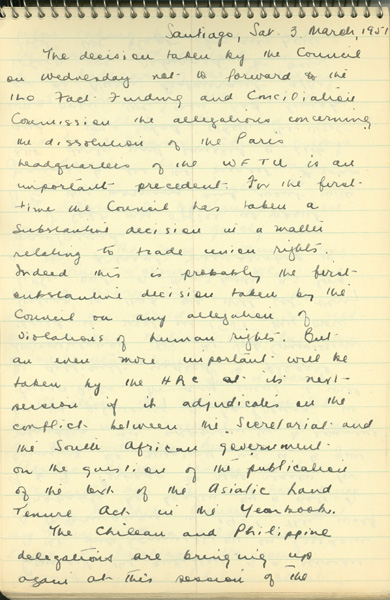 Santiago, Sat. 3 March, 1951
The decision taken by the Council
on Wednesday not to forward to the
ILO Fact-Finding and Conciliation
Commission the allegations concerning
the dissolution of the Paris
headquarters of the WFTU is an
important precedent. For the first
time the Council has taken a
substantive decision in a matter
relating to trade union rights.
Indeed this is probably the first
substantive decision taken by the
Council on any allegation of
violations of human rights. But
an even more important will be
taken by the HRC at its next
session if it adjudicates on the
conflict between the Secretariat and
the South African government
on the question of the publication
of the text of the Asiatic Land
Tenure Act in the Yearbook.
The Chilean and Philippine
delegations are bringing up
again at this session of the